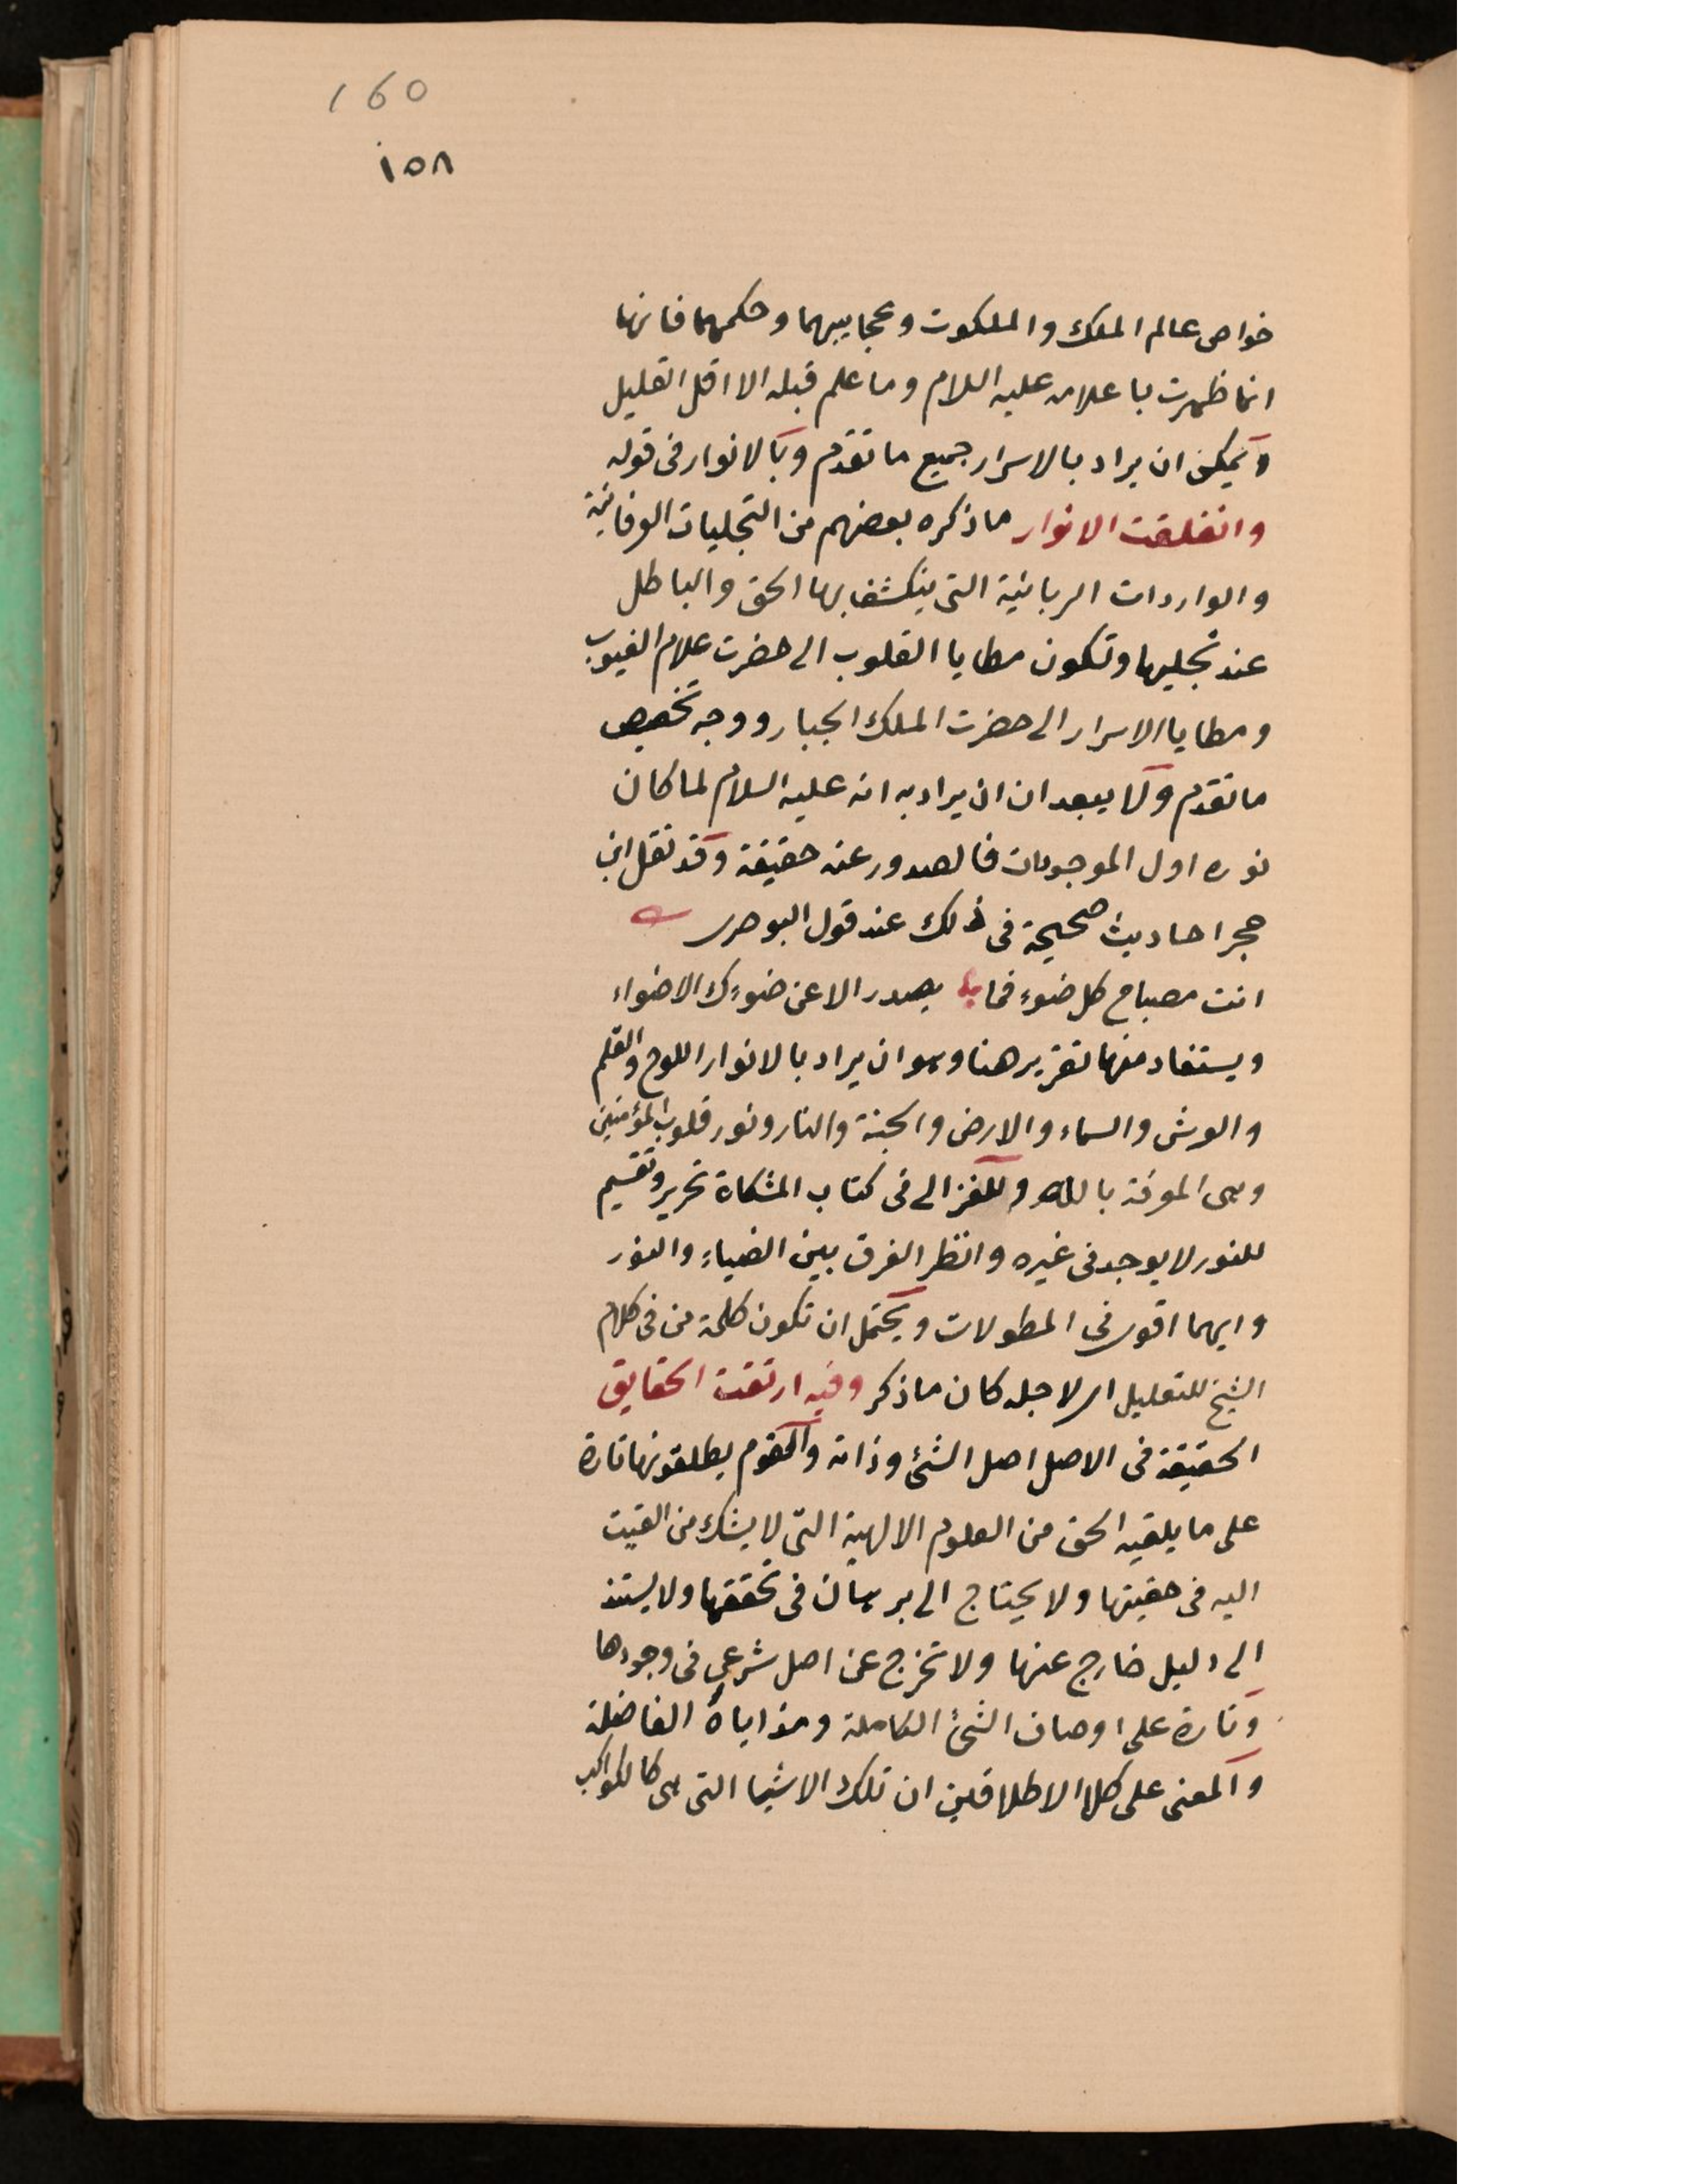 160
١٥٨
خواص عالم الملك والملكوت وعجايبهما وحكمهما فانها
انما ظهرت باعلامه عليه السلام وما علم قبله الا اقل القليل
ويمكن ان يراد بالاسرار جميع ما تقدم وبالانوار فى قوله
وانفلقت الانوار ماذكره بعضهم من التجليات العرفانية
والواردات الربانية التى ينكشف بها الحق والباطل
عند تجليها وتكون مطايا القلوب الى حضرت علام الغيوب
ومطايا الاسرار الى حضرت الملك الجبار ووجه تخصيص
ما تقدم ولا يبعد ان ان يراد به انه عليه السلام لما كان
نوره اول الموجودات فالصدور عنه حقيقة وقد نقل ابن
حجر احاديث صحيحة فى ذلك عند قول البوصرى
انت مصباح كل ضوء فما يصدر الا عن ضوءك الاضواء
ويستفاد منها تقرير هنا وهو ان يراد بالانوار اللوح والقلم
والعرش والسماء والارض والجنة والنار ونور قلوب المؤمنين
وهى المعرفة بالله وللغزالى فى كتاب المشكاة تحرير وتقسيم
للنور لا يوجد فى غيره وانظر الفرق بين الضياء والنور
وايهما اقوى فى المطولات ويحتمل ان تكون كلمة من فى كلام
الشيخ للتعليل اى لاجله كان ماذكر وفيه ارتقت الحقايق
الحقيقة فى الاصل اصل الشئ وذاته والقوم يطلقونها تارة
على ما يلقيه الحق من العلوم الالهية التى لا يشك من القيت
اليه فى حقيتها ولا يحتاج الى برهان فى تحققها ولا يستند
الى دليل خارج عنها ولا تخرج عن اصل شرعى فى وجودها
وتارة على اوصاف الشئ الكاملة ومزاياه الفاضلة
والمعنى على كلا الاطلاقين ان تلك الاشيا التى هى كالكواكب